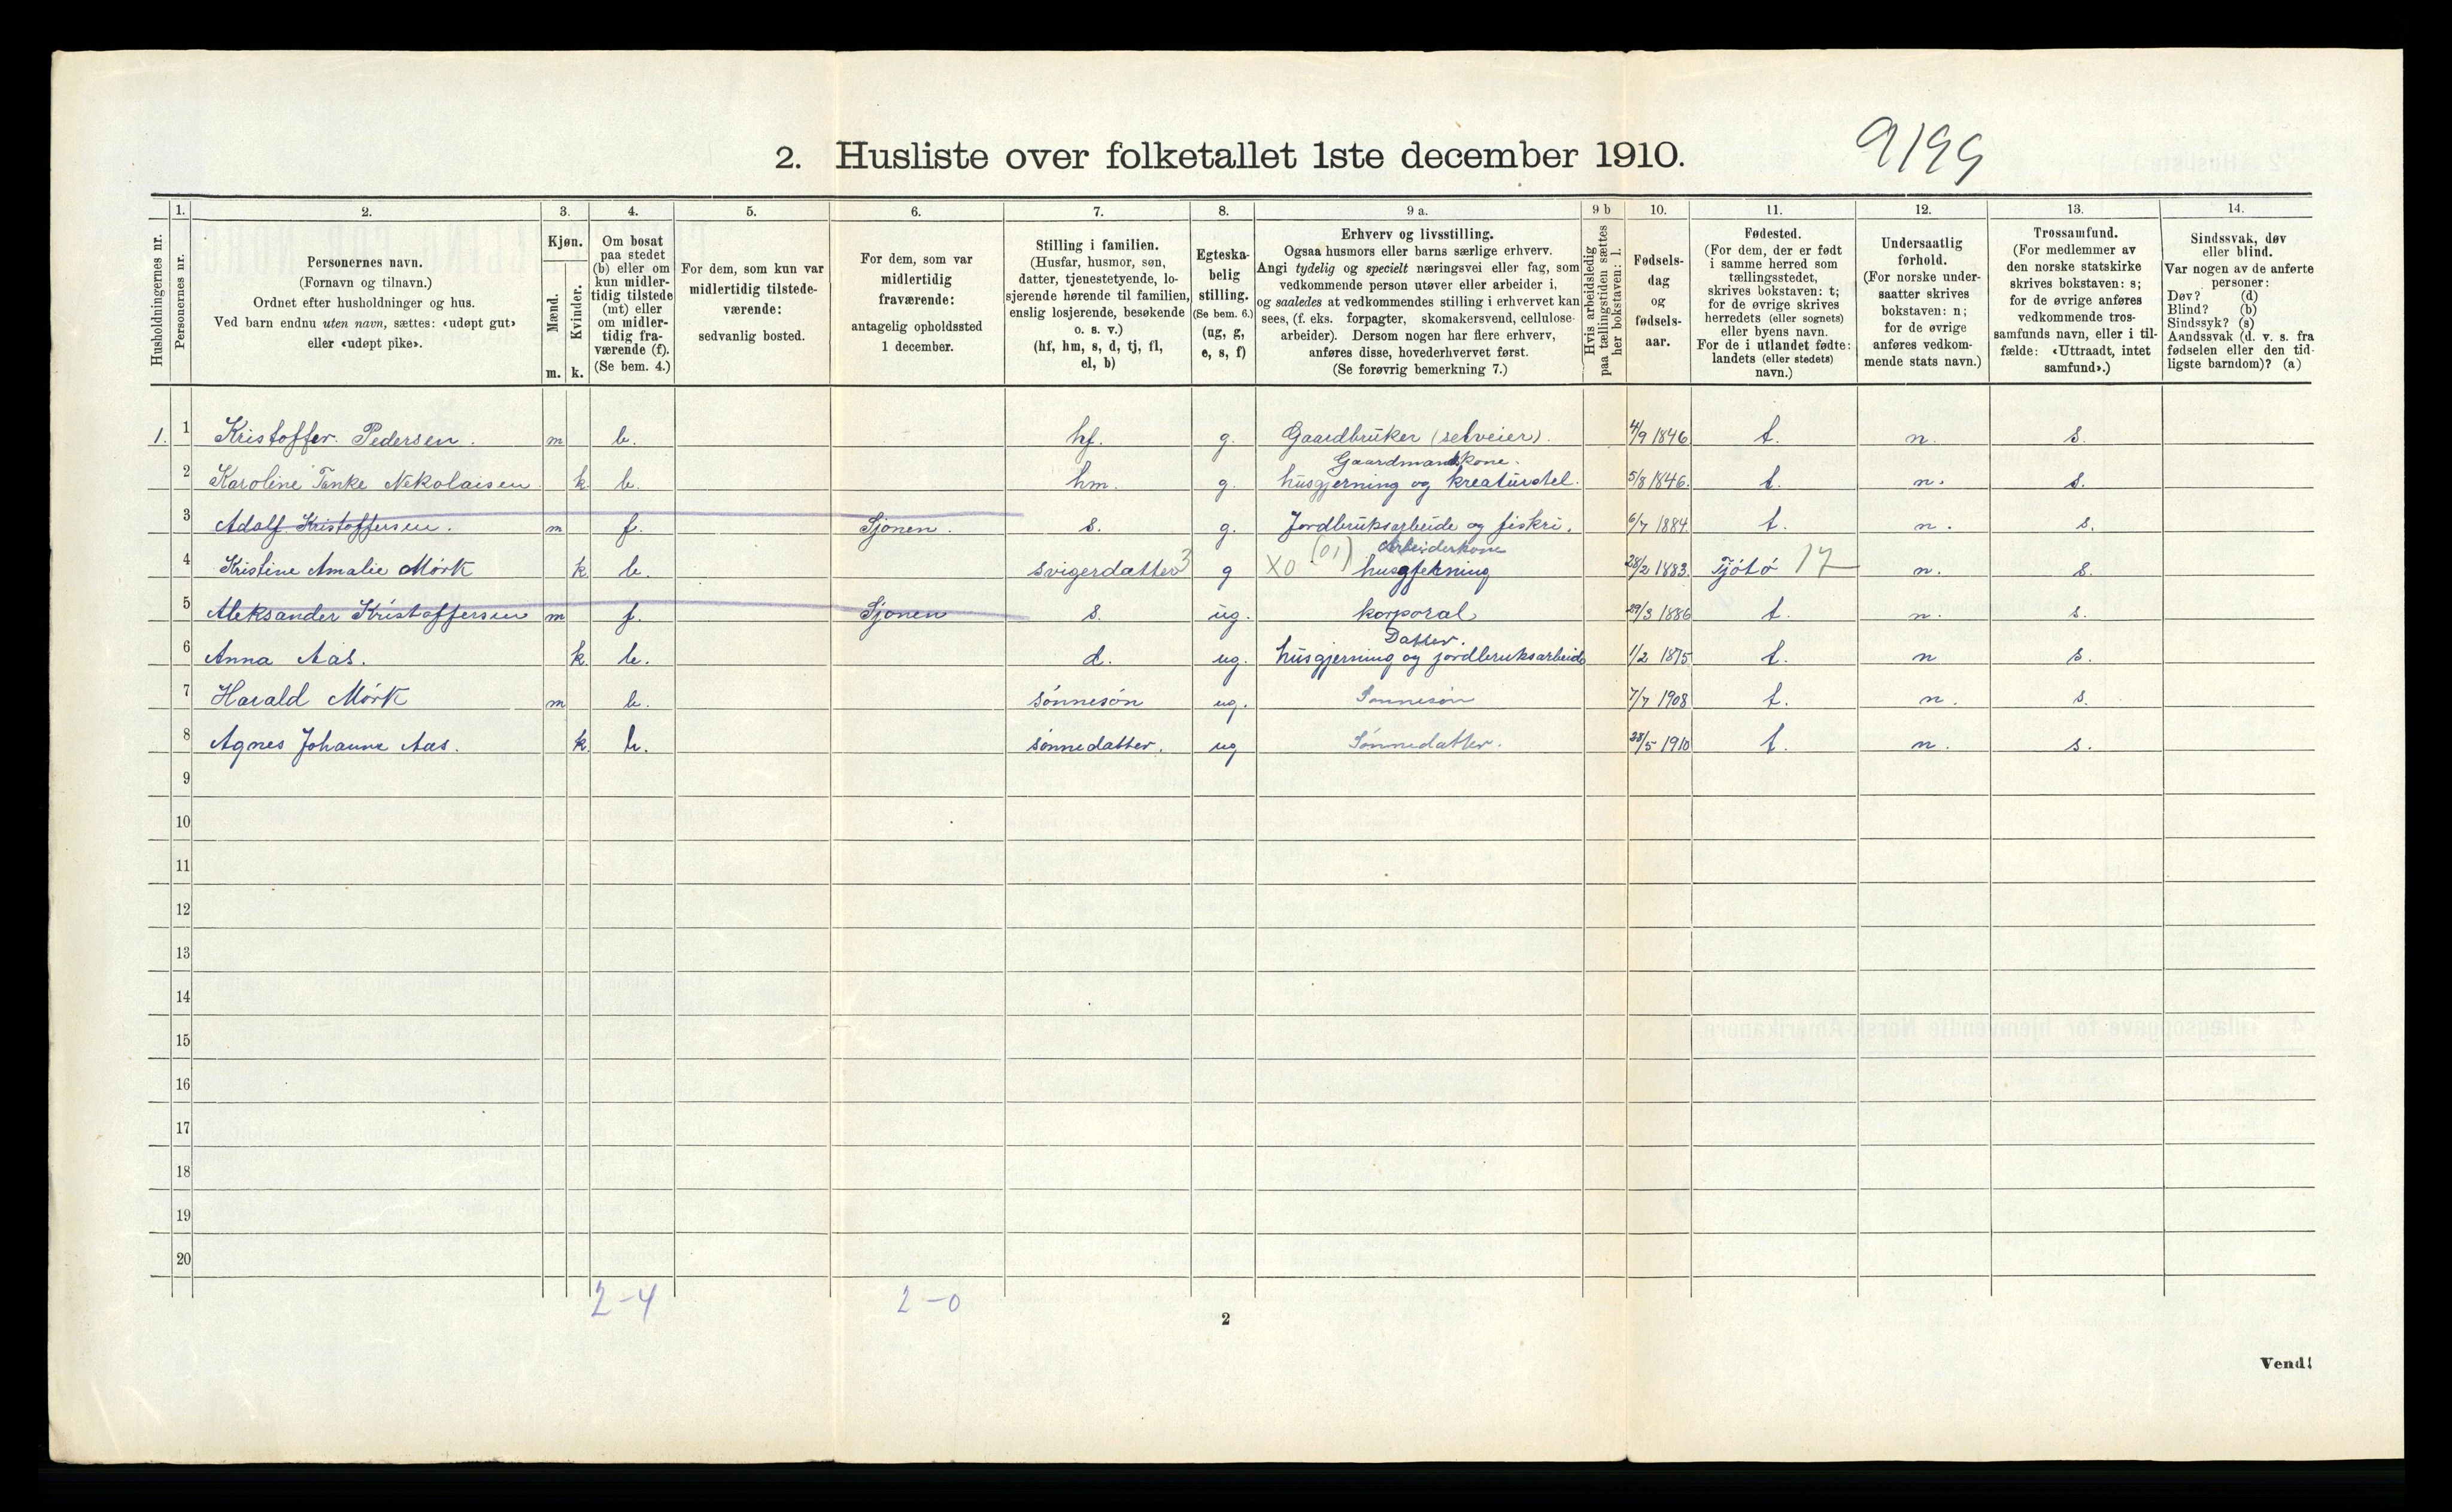 9199
2. Husliste over folketallet 1ste december 1910.
Husholdningernes nr.
1.
Personernes nr.
2.
Personernes navn.
(Fornavn og tilnavn.)
Ordnet efter husholdninger og hus.
Ved barn endnu uten navn, sættes: «udøpt gut»
eller «udøpt pike».
3.
Kjøn.
Mænd.
Kvinder.
m. k.
4.
Om bosat
paa stedet
(b) eller om
kun midler-
tidig tilstede
(mt) eller
om midler-
tidig fra-
værende (f).
(Se bem. 4.)
5.
For dem, som kun var
midlertidig tilstede-
værende:
sedvanlig bosted.
6.
For dem, som var
midlertidig
fraværende:
antagelig opholdssted
1 december.
7.
Stilling i familien.
(Husfar, husmor, søn,
datter, tjenestetyende, lo-
sjerende hørende til familien,
enslig losjerende, besøkende
o. s. v.)
(hf, hm, s, d, tj, fl,
el, b)
8.
Egteska-
belig
stilling.
(Se bem. 6.)
(ug, g,
e, s, f)
9 a.
Erhverv og livsstilling.
Ogsaa husmors eller barns særlige erhverv.
Angi tydelig og specielt næringsvei eller fag, som
vedkommende person utøver eller arbeider i,
og saaledes at vedkommendes stilling i erhvervet kan
sees, (f. eks. forpagter, skomakersvend, cellulose-
arbeider). Dersom nogen har flere erhverv,
anføres disse, hovederhvervet først.
(Se forøvrig bemerkning 7.)
9 b
Hvis arbeidsledig
paa tællingstiden sættes
her bokstaven: l.
10.
Fødsels-
dag
og
fødsels-
aar.
11.
Fødested.
(For dem, der er født
i samme herred som
tællingsstedet,
skrives bokstaven: t;
for de øvrige skrives
herredets (eller sognets)
eller byens navn.
For de i utlandet fødte:
landets (eller stedets)
navn.)
12.
Undersaatlig
forhold.
(For norske under-
saatter skrives
bokstaven: n;
for de øvrige
anføres vedkom-
mende stats navn.)
13.
Trossamfund.
(For medlemmer av
den norske statskirke
skrives bokstaven: s;
for de øvrige anføres
vedkommende tros-
samfunds navn, eller i til-
fælde: «Uttraadt, intet
samfund».)
14.
Sindssvak, døv
eller blind.
Var nogen av de anførte
personer:
Døv? (d)
Blind? (b)
Sindssyk? (s)
Aandssvak (d. v. s. fra
fødselen eller den tid-
ligste barndom)? (a)
1. 1 Kristoffer Pedersen. m b. hf. g. Gaardbruker (selveier). 4/9 1846 t. n. s.
Gaardmandskone.
2 Karoline Tanke Nekolaisen k b. hm. g. husgjerning og kreaturstel. 5/8 1846. t. n. s.
3 Adolf Kristoffersen. m f. Sjonen. s. g. Jordbruksarbeide og fiskri. 6/7 1884. t. n. s.
(01) Arbeiderkone
4 Kristine Amalie Mørk k b. svigerdatter 3 g X0 husgjerning 28/2 1883. Tjøtø 17 n. s.
5 Aleksander Kristoffersen m f. Sjonen s. ug. korporal 29/3 1886 t. n. s.
Datter.
6 Anna Aas. k b. d. ug. husgjerning og jordbruksarbeide 1/2 1875 t. n s.
7 Harald Mørk m b. sønnesøn ug. Sønnesøn 7/7 1908 t. n. s.
8 Agnes Johanne Aas. k b. sønnedatter. ug Sønnedatter. 23/5 1910 t. n. s.
9
10
11
12
13
14
15
16
17
18
19
20
2-4 2-0
2
Vend!